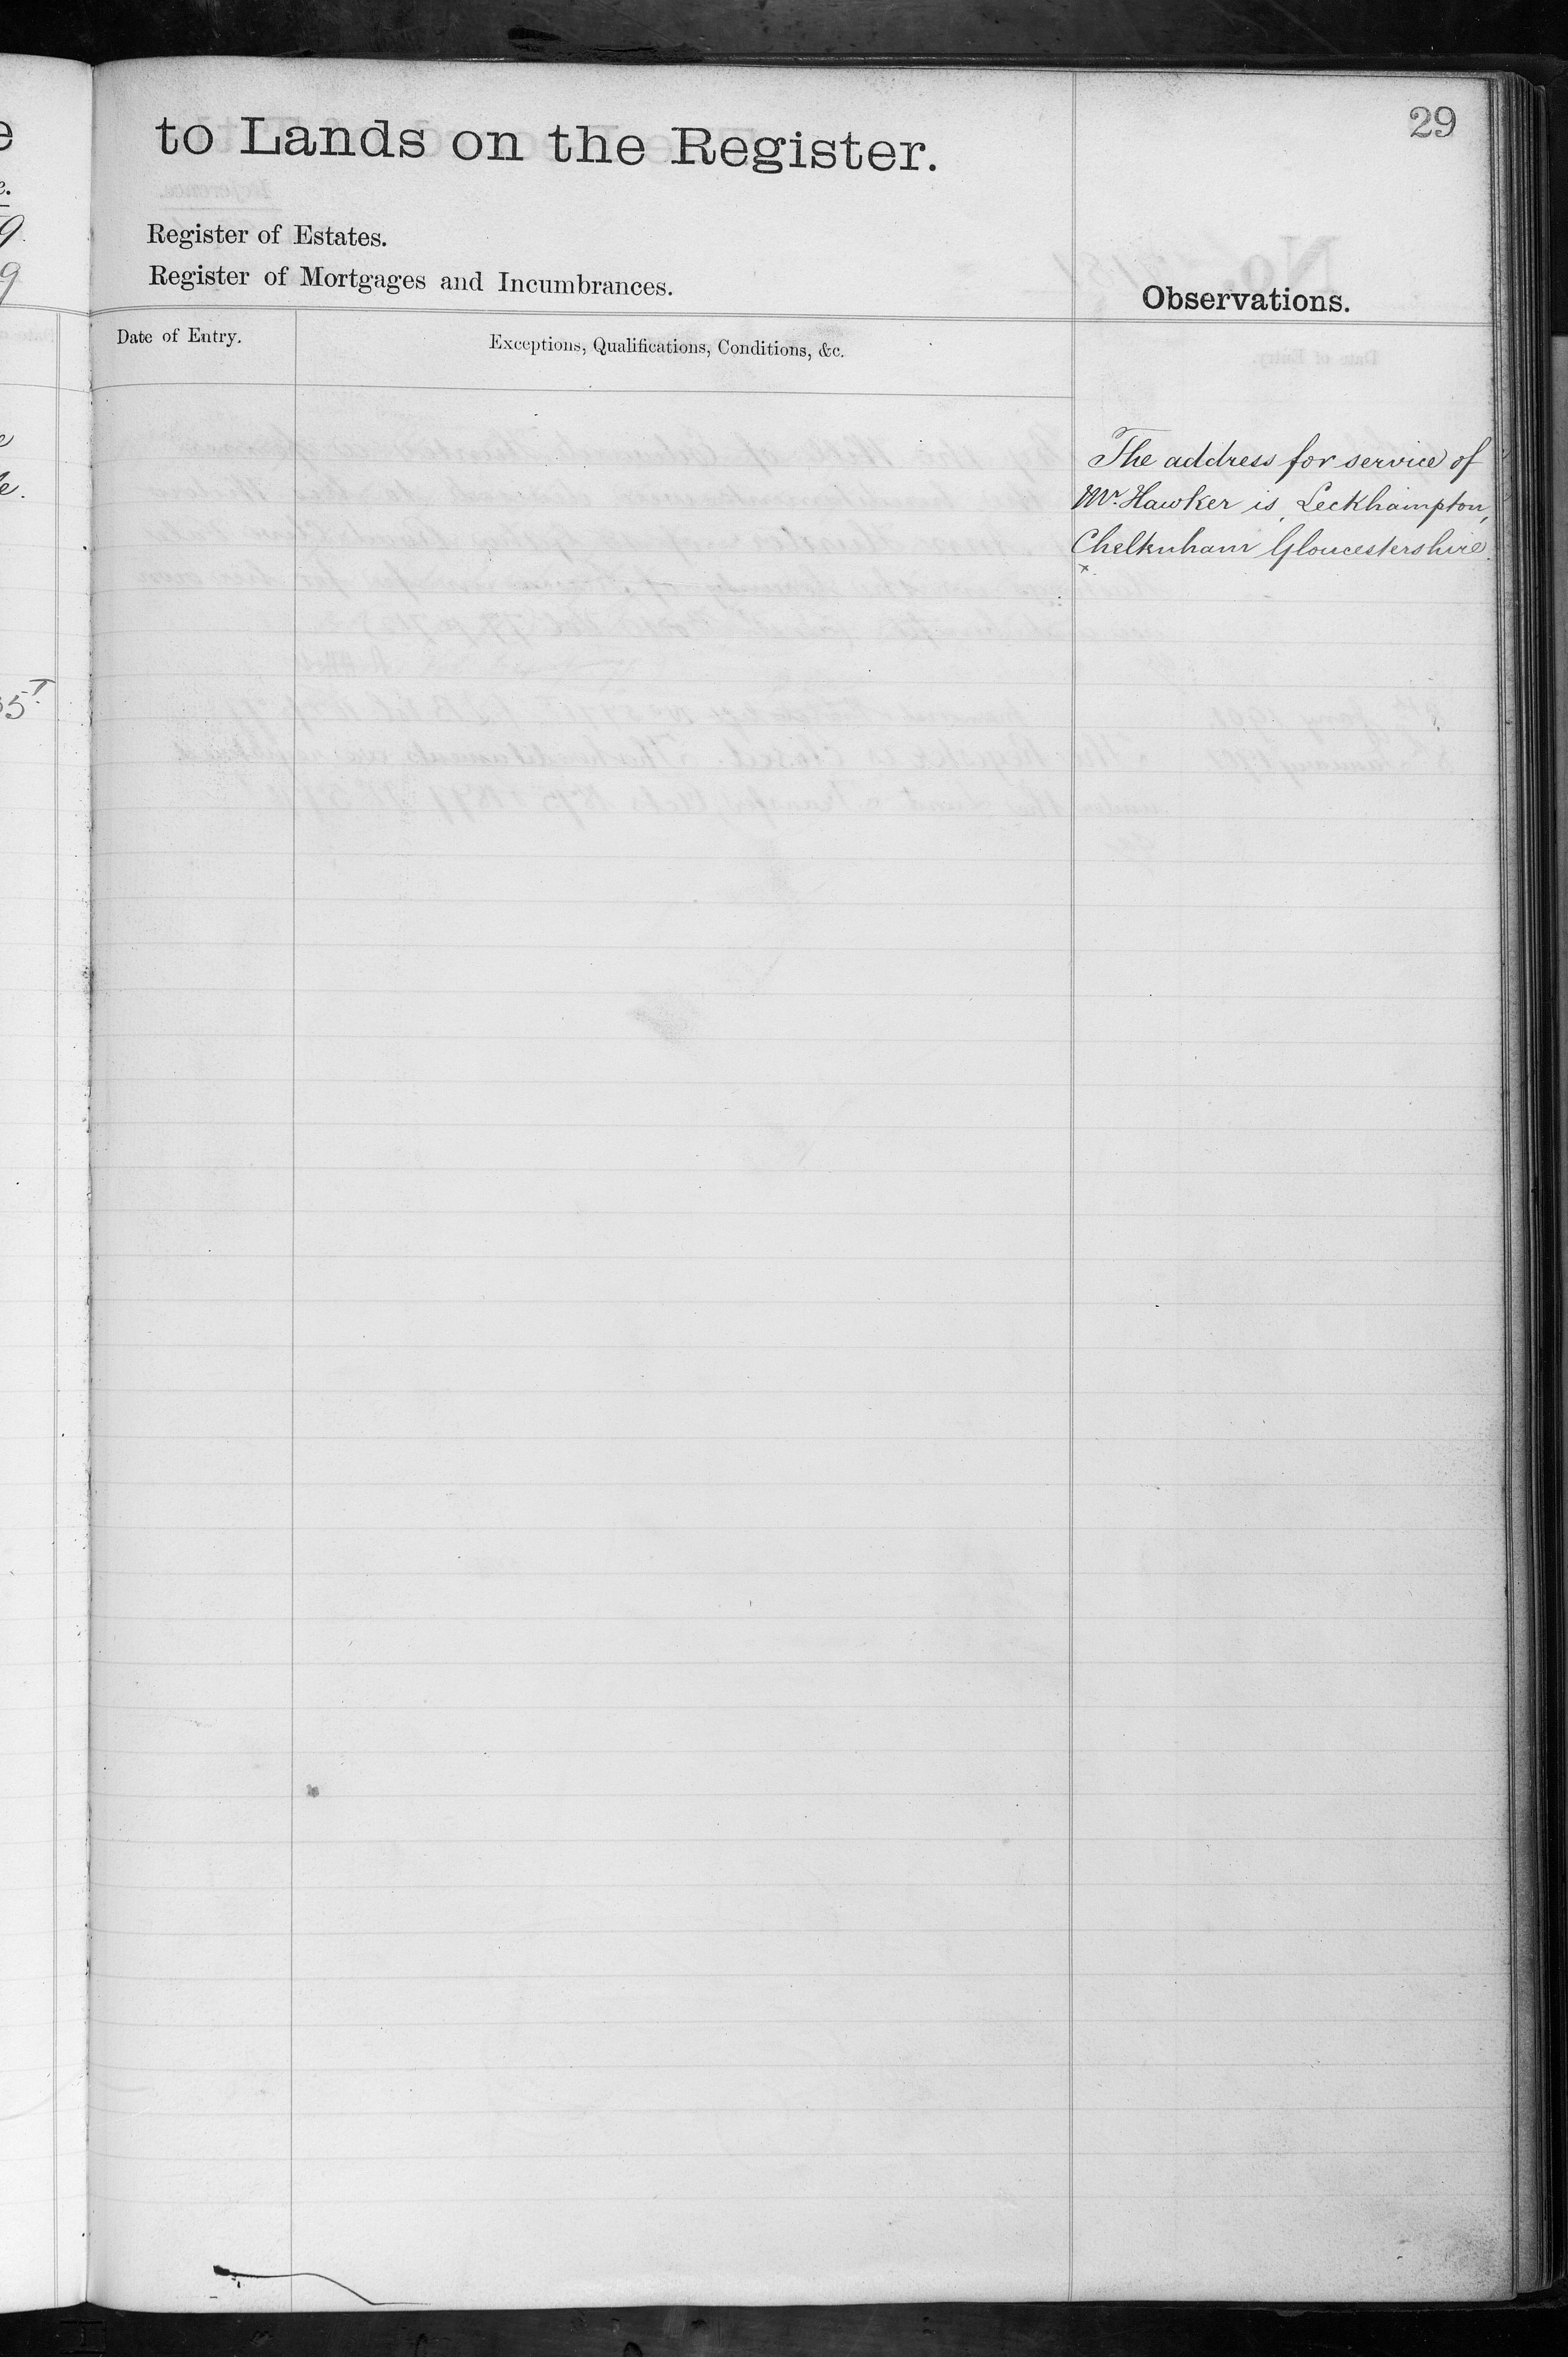 29
to Lands on the Register.
Register of Estates.
Register of Mortgages and Incumbrances.
Observations.
Date of Entry.
Exceptions, Qualifications, Conditions, &c.
The address for service of
Mr. Hawker is, Leckhampton,
Cheltenham Gloucestershire.